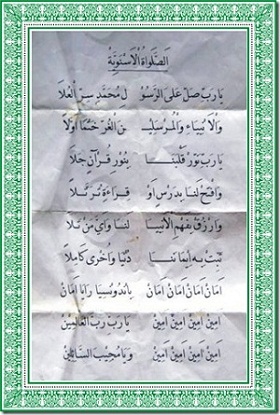 الصَّلَوَاةُ الْأَسْنَوِيَّةُ
يَا رَبِّ صَلِّ عَلَى الرَّسُوْ لِ مُحَمَّدٍ سِرِّ الْعُلَا
وَالْأَنْبِيَاءِ وَالْمُرْسَلِيْـ نَ الْغُرِّ خَتْمًا أَوَّلَا
يَا رَبِّ نَوِّرْ قَلْبَنَا بِنُوْرِ قُرْآنٍ جَلَا
وَافْتَحْ لَنَا بِدَرْسٍ أَوْ قِرَاءَةٍ تُرَتَّلَا
وَارْزُقْ بِفَهْمِ الْأَنْبِيَا لَنَا وَأَيَّ مَنْ تَلَا
ثَبِّتْ بِهِ إِيْمَانَنَا دُنْيَا وَأُخْرَى كَامِلَا
أَمَانْ أَمَانْ أَمَانْ أَمَانْ بِانْدُوْنِيْسِيَا رَايَا أَمَانْ
أٰمِيْنْ أٰمِيْنْ أٰمِيْنْ أٰمِيْنْ يَا رَبِّ رَبَّ الْعَالَمِيْنْ
أٰمِيْنْ أٰمِيْنْ أٰمِيْنْ أٰمِيْنْ وَيَا مُجِيْبَ السَّائِلِيْنْ